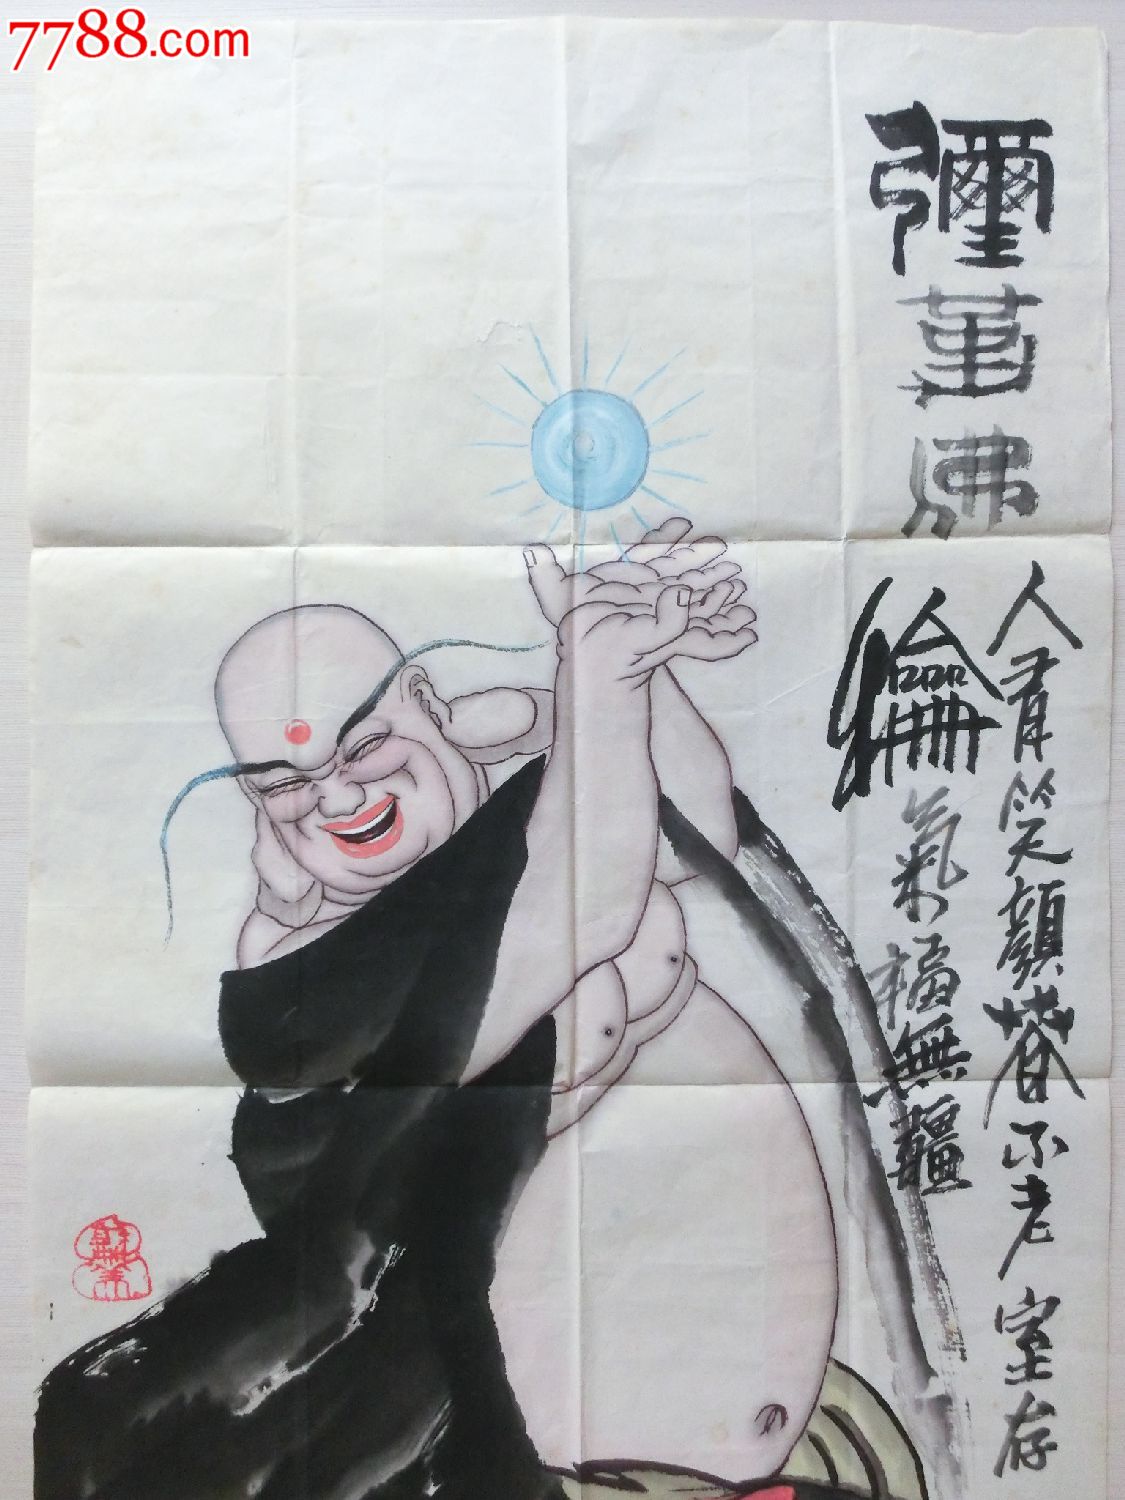 7788.com
彌勒佛
人有笑顏春不老室存
龢氣福無疆